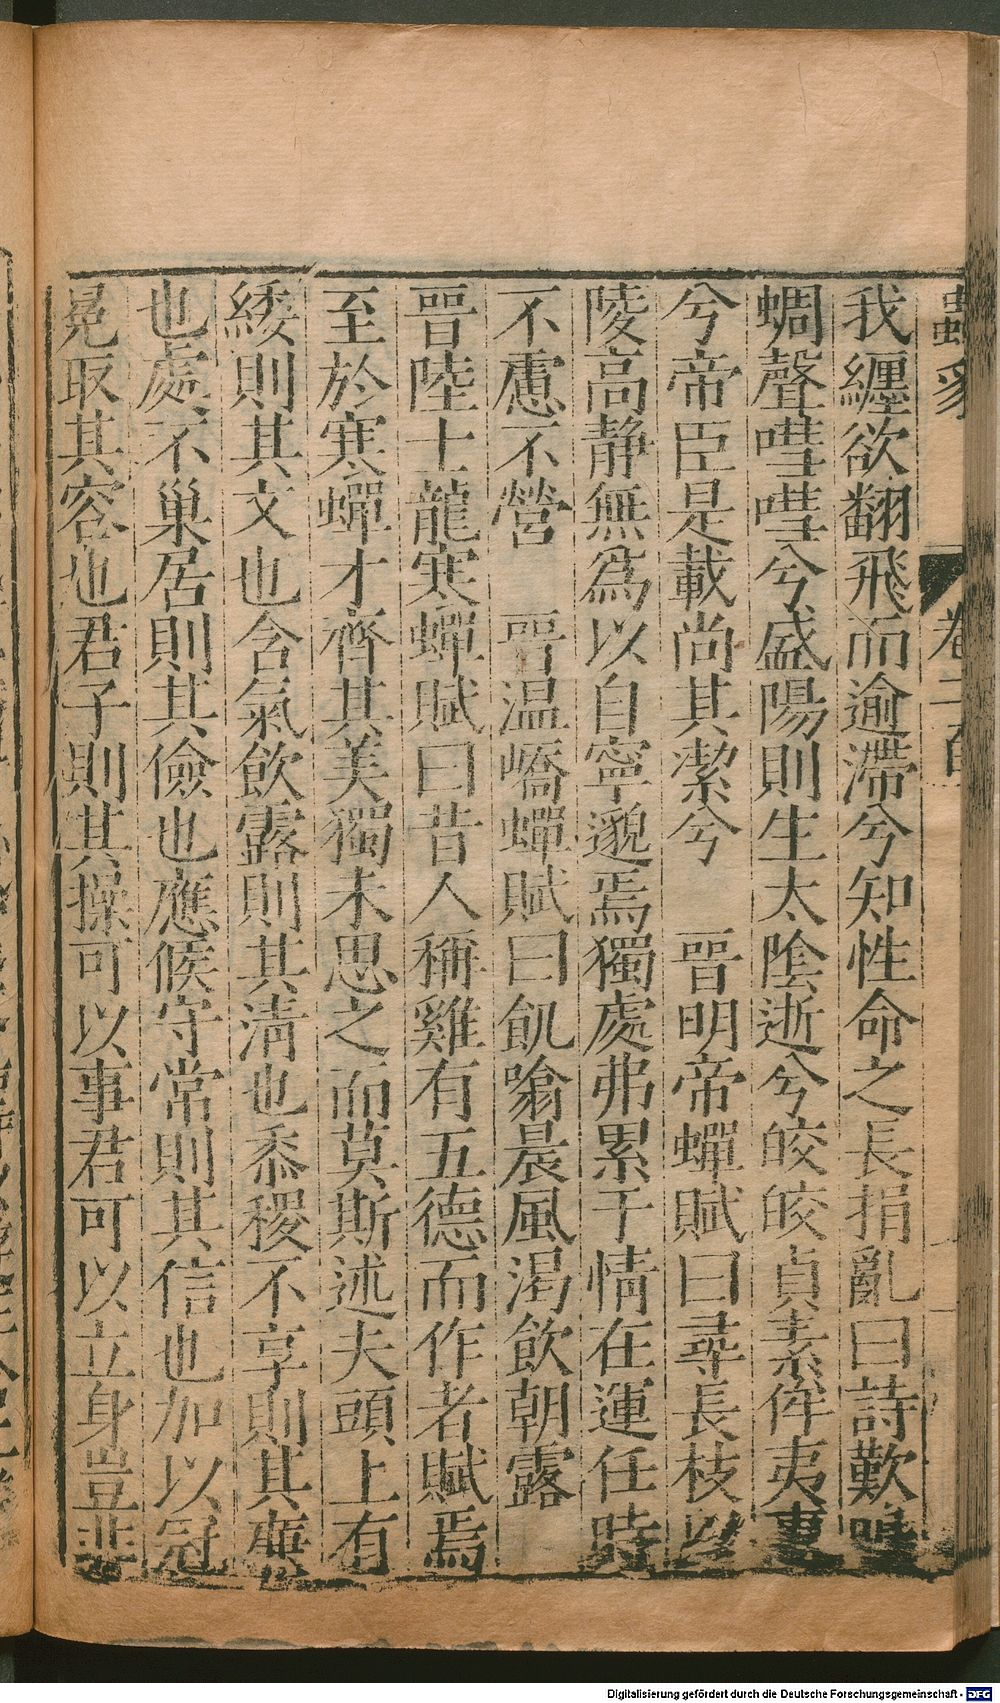 蟲豸
卷二百
我纏欲翻飛而逾滯兮知性命之長捐亂曰詩歎鳴
蜩聲嘒嘒兮盛陽則生太陰逝兮皎皎貞素侔夷惠
兮帝臣是載尚其潔兮　晉明帝蟬賦曰尋長枝以
陵高静無爲以自寧邈焉獨處弗累于情在運任時
不慮不營　晉温嶠蟬賦曰飢噏晨風渴飲朝露
晉陸士龍寒蟬賦曰昔人稱雞有五德而作者賦焉
至於寒蟬才齊其美獨未思之而莫斯述夫頭上有
緌則其文也含氣飲露則其清也黍稷不享則其廉
也處不巢居則其儉也應候守常則其信也加以冠
冕取其容也君子則其操可以事君可以立身豈非
Digitalisierung gefördert durch die Deutsche Forschungsgemeinschaft - DFG